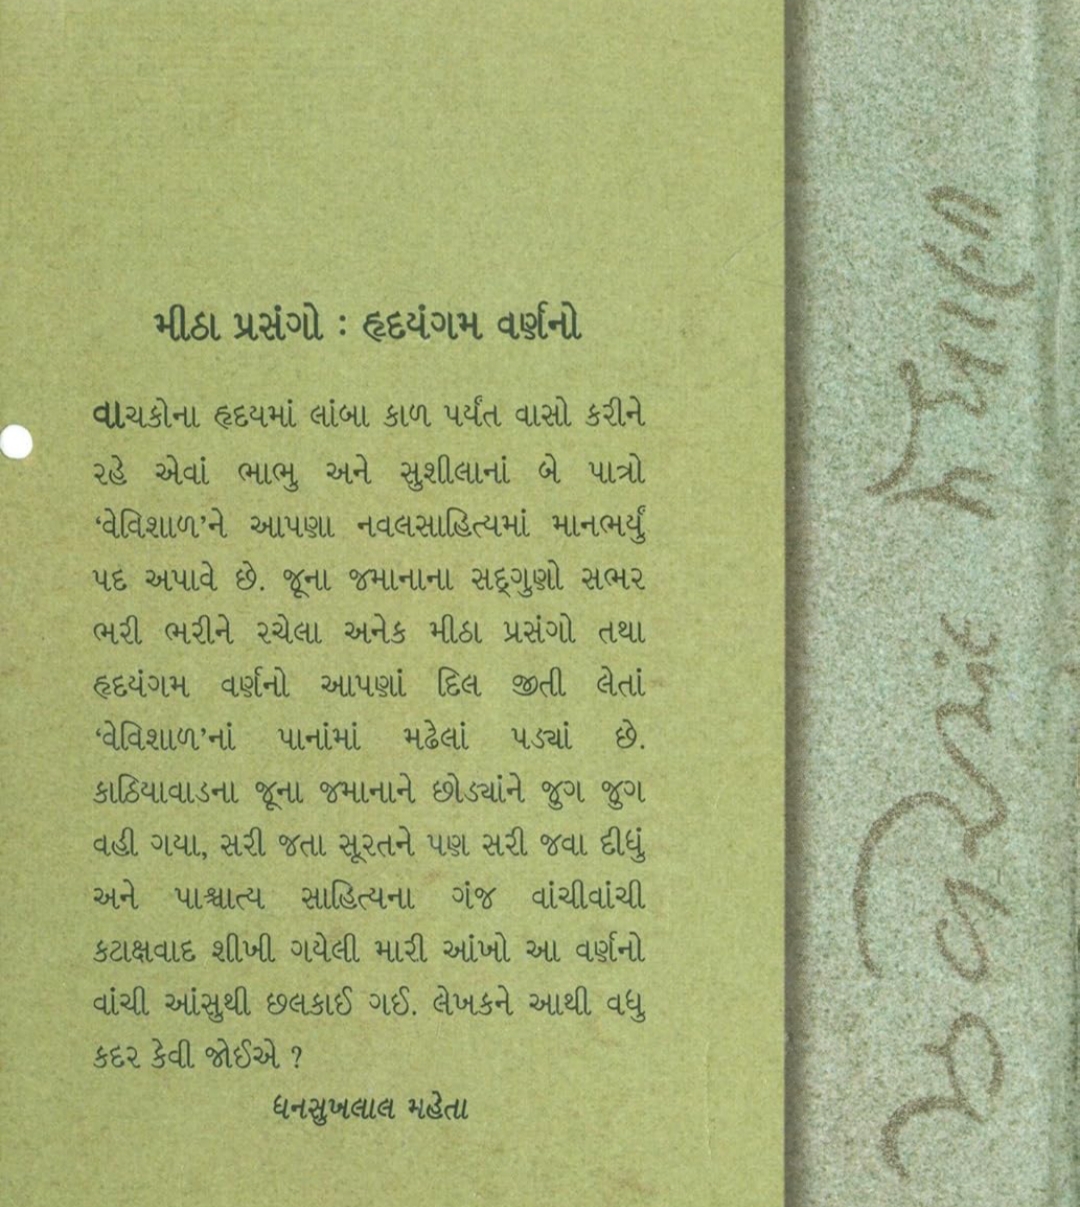 મીઠા પ્રસંગો : હૃદયંગમ વર્ણનો
વાચકોના હૃદયમાં લાંબા કાળ પર્યંત વાસો કરીને
રહે એવાં ભાભુ અને સુશીલાનાં બે પાત્રો
‘વેવિશાળ’ને આપણા નવલસાહિત્યમાં માનભર્યું
પદ અપાવે છે. જૂના જમાનાના સદ્‌ગુણો સભર
ભરી ભરીને રચેલા અનેક મીઠા પ્રસંગો તથા
હૃદયંગમ વર્ણનો આપણાં દિલ જીતી લેતાં
‘વેવિશાળ’નાં પાનાંમાં મઢેલાં પડ્યાં છે.
કાઠિયાવાડના જૂના જમાનાને છોડ્યાંને જુગ જુગ
વહી ગયા, સરી જતા સૂરતને પણ સરી જવા દીધું
અને પાશ્ચાત્ય સાહિત્યના ગંજ વાંચીવાંચી
કટાક્ષવાદ શીખી ગયેલી મારી આંખો આ વર્ણનો
વાંચી આંસુથી છલકાઈ ગઈ. લેખકને આથી વધુ
કદર કેવી જોઈએ ?
ધનસુખલાલ મહેતા
ઝવેરચંદ મેઘાણી